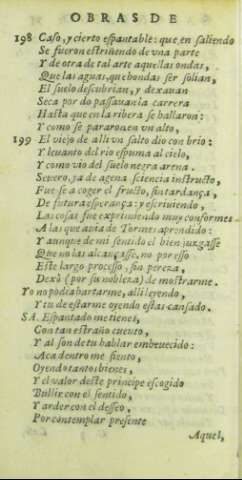 OBRAS DE
198 Caso, y cierto espantable: que, en saliendo
Se fueron estriñendo de vna parte
Y de otra de tal arte aquellas ondas,
Que las aguas, que hondas ser solian,
El suelo descubrian, y dexauan
Seca por do passauan la carrera
Hasta que en la ribera se hallaron:
Y como se pararon en vn alto,
199 El viejo de alli vn salto dio con brio:
Y leuantò del rio espuma al cielo,
Y comouio del suelo negra arena.
Seuero, ya de agena sciencia instructo,
Fue se a coger el fructo, sin tardança,
De futura esperança: y escriuiendo,
Las cosas fue exprimiendo muy conformes
A las que auia de Tormes aprendido:
Y aunque de mi sentido el bien juzgasse
Que no las alcançasse, no por esso
Este largo processo, sin pereza,
Dexò (por su nobleza) de mostrarme.
Yo no podia hartarme, alli leyendo,
Y tu de estarme oyendo estas cansado.
SA. Espantado me tienes,
Con tan estraño cuento,
Y al son de tu hablar embeuecido:
Aca dentro me siento,
Oyendo tantos bienes,
Y el valor deste principe escogido
Bullir con el sentido,
Y arder con el desseo,
Por contemplar presente
Aquel,